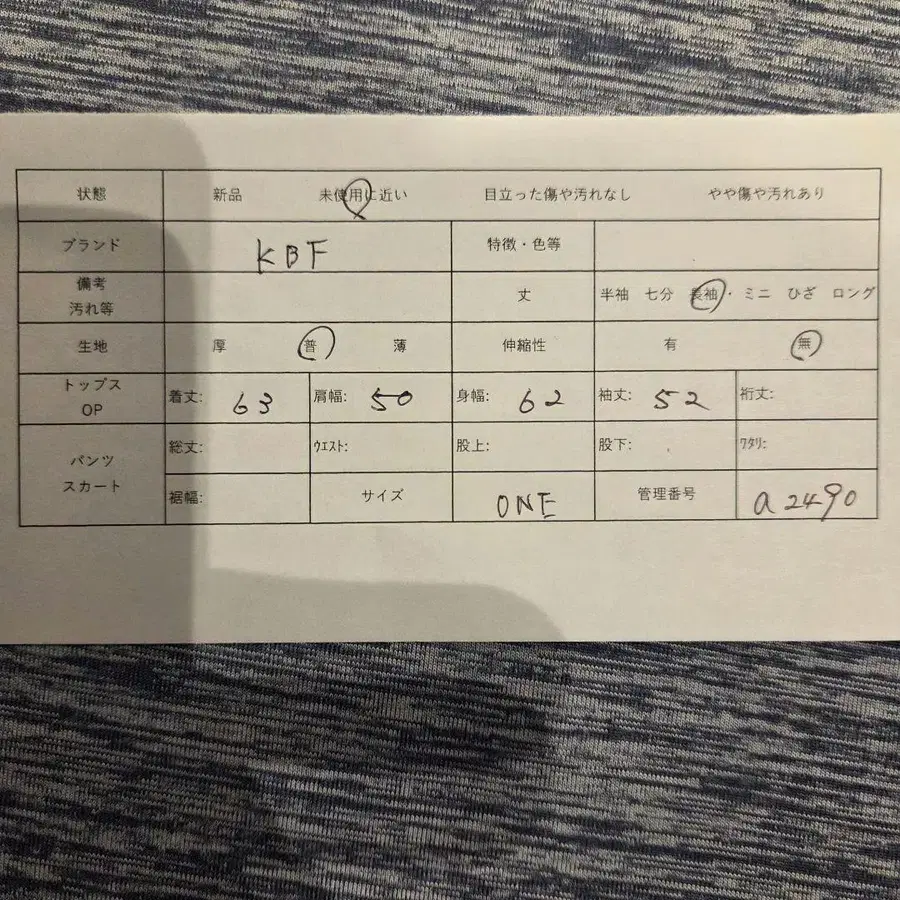 状態 新品 未使用に近い 目立った傷や汚れなし やや傷や汚れあり
ブランド KBF 特徴・色等
備考
汚れ等 丈 半袖 七分 長袖・ ミニ ひざ ロング
生地 厚 普 薄 伸縮性 有 無
トップス
OP 着丈: 63 肩幅: 50 身幅: 62 袖丈: 52 裄丈:
パンツ
スカート 総丈: ウエスト: 股上: 股下: ワタリ:
裾幅: サイズ ONE 管理番号 a2490